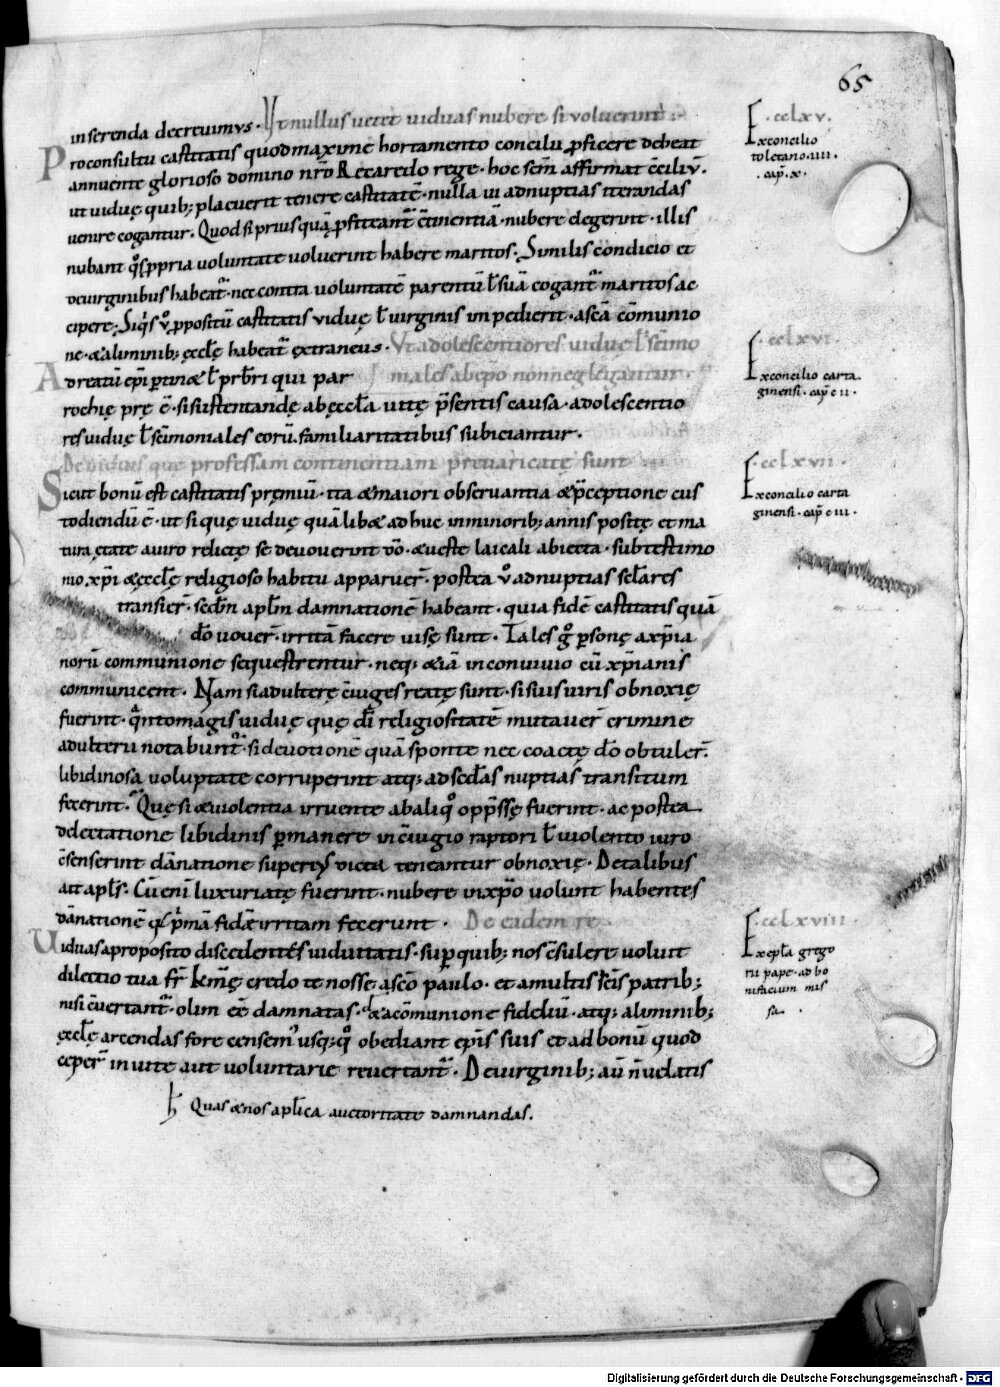 65
inserenda decreuimus. Ut nullus uetet uiduas nubere si uoluerint.
.cclxv.
Ex concilio
toletano .iiii.
.cap̄.x.
Pro consultu castitatis quod maxime hortamento concilii ꝓficere debeat
annuente glorioso domino nr̄o Recaredo rege. hoc sc̄m affirmat c̄ciliū.
ut uiduę quib; placuerit tenere castitatē. nulla ui ad nuptias iterandas
uenire cogantur. Quod si priusquā ꝓfiteant̄ c̄tinentiā. nubere degerint. illis
nubant qͦs ꝓpria uoluntate uoluerint habere maritos. Similis condicio et
de uirginibus habeat̄. nec contra uoluntatē parentū ł suā cogant̄ maritos ac
cipere. Siqͥs ꝟ ꝓpositū castitatis viduę ł virginis impedierit. a sc̄a cōmunio
ne. & a liminib; ęcclę̄ habeat̄ extraneus. Ut adolescentiores uiduę ł sc̄imo
.cclxvi.
Ex concilio carta
ginensi. cap̄e ii.
Ad reatū ep̄i ꝑtin& ł prb̄ri qui par
niales ab ep̄o non neglegantur.
rochię prę ē. si sustentandę ab ęccl̄a uitę p̄sentis causa. adolescentio
res uiduę ł sc̄imoniales eorū familiaritatibus subiciantur.
De uiduis que professam continentiam preuaricate sunt
.cclxvii.
Ex concilio carta
ginensi. cap̄e iii.
Sicut bonū est castitatis pręmiū. ita & maiori obseruantia & p̄ceptione cus
todiendū ē. ut si quę uiduę quālib& adhuc in minorib; annis positę et ma
tura ętate a uiro relictę se deuouerint dō. & ueste laicali abiecta. sub testimo
nio xp̄i & ęcclę̄ religioso habitu apparuer̄. postea ꝟ ad nuptias sęl̄ares
transier̄. sed̄m apl̄m damnationē habeant. quia fidē castitatis quā
dō vouer̄. irritā facere uisę sunt. Tales gͦ ꝑsonę a xp̄ia
norū communione sequestrentur. neq; &iā in conuiuio cū xp̄ianis
communicent. Nam si adulterę c̄iuges reatę sunt. si suis uiris obnoxię
fuerint. qͣnto magis uiduę quę dī religiositatē mutauer̄ crimine
adulterii notabunt̄. si deuotionē quā sponte nec coactę dō obtuler̄.
libidinosa uoluptate corruperint atq; ad sed̄as nuptias transitum
fecerint. Quę si & uiolentia irruente ab aliqͦ opp̄ssę fuerint. ac postea
delectatione libidinis ꝑmanere in c̄iugio raptori ł uiolento uiro
c̄senserint dānatione superius dicta teneantur obnoxię. De talibus
ait apl̄s. Cū enī luxuriatę fuerint. nubere in xp̄o volunt habentes
dānationē qͥ pͥmā fidē irritam fecerunt. De eadem re
.cclxviii.
Ex epl̄a grego
rii pape. ad bo
nifacium mis
sa.
Uiduas a proposito discedentes uiduitatis. suꝑ quib; nos c̄sulere voluit
dilectio tua fr̄ km̄ę credo te nosse a sc̄o paulo. et a multis sc̄is patrib;
nisi c̄uertant̄. olim eē damnatas. & a cōmunione fideliū. atq; a liminib;
ęcclę̄ arcendas fore censem̄ usq; qͦ obediant ep̄is suis et ad bonū quod
ceper̄ inuite aut voluntarie reuertant̄. De uirginib; aū n̄ uelatis
Quas & nos apl̄ica auctoritate damnandas.
Digitalisierung gefördert durch die Deutsche Forschungsgemeinschaft - DFG